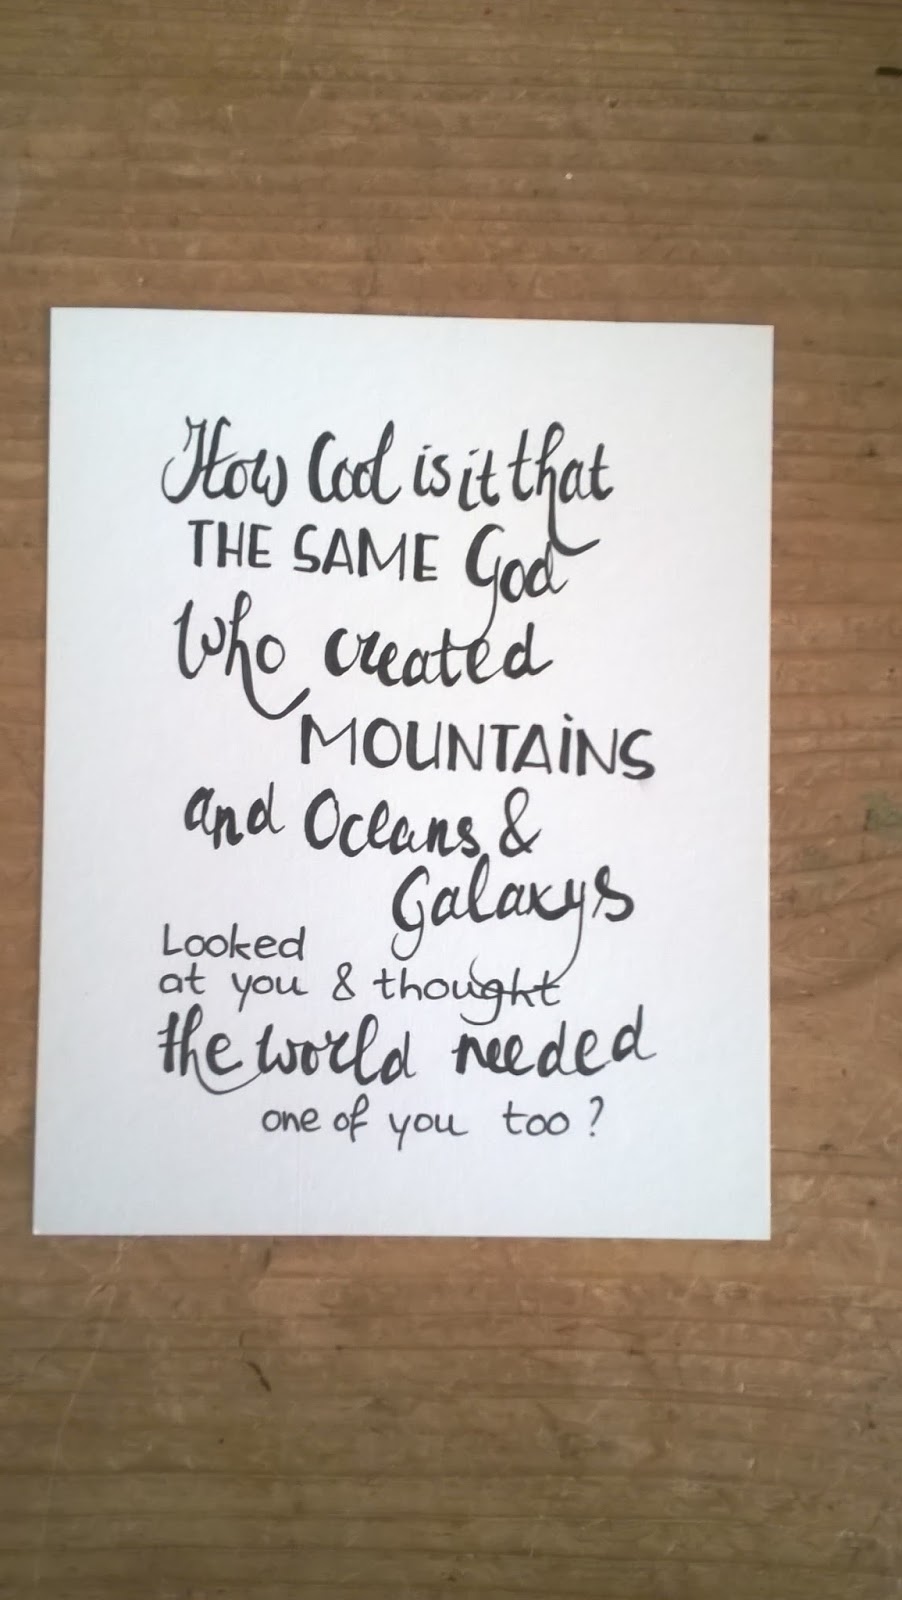 How Cool is it that
THE SAME God
Who created
MOUNTAiNS
and Oceans &
Galaxys
Looked
at you & thought
the world needed
one of you too?